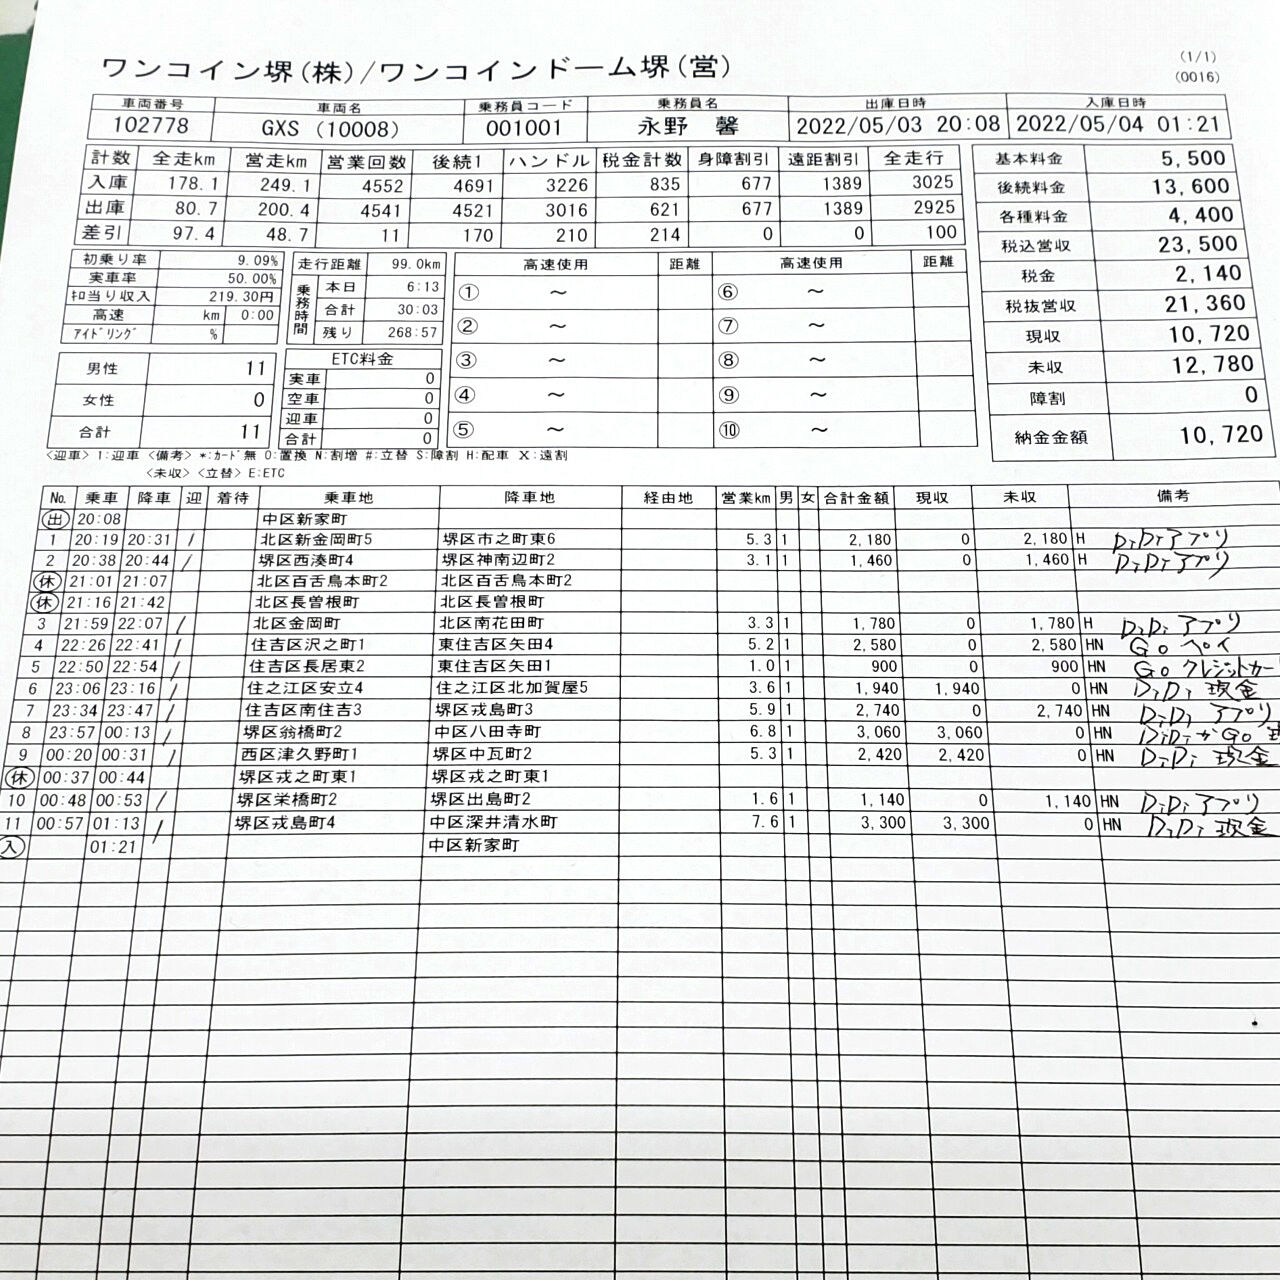 (1/1)
ワンコイン堺(株)/ワンコインドーム堺(営)
(0016)
車両番号 車両名 乗務員コード 乗務員名 出庫日時 入庫日時
102778 GXS (10008) 001001 永野 馨 2022/05/03 20:08 2022/05/04 01:21
計数 全走km 営走km 営業回数 後続1 ハンドル 税金計数 身障割引 遠距割引 全走行
入庫 178.1 249.1 4552 4691 3226 835 677 1389 3025
出庫 80.7 200.4 4541 4521 3016 621 677 1389 2925
差引 97.4 48.7 11 170 210 214 0 0 100
基本料金 5,500
後続料金 13,600
各種料金 4,400
税込営収 23,500
税金 2,140
税抜営収 21,360
現収 10,720
未収 12,780
障割 0
納金金額 10,720
初乗り率 9.09%
実車率 50.00%
ｷﾛ当り収入 219.30円
高速 km 0:00
ｱｲﾄﾞﾘﾝｸﾞ %
走行距離 99.0km
乗務時間
本日 6:13
合計 30:03
残り 268:57
高速使用 距離 高速使用 距離
① ～ ⑥ ～
② ～ ⑦ ～
③ ～ ⑧ ～
④ ～ ⑨ ～
⑤ ～ ⑩ ～
男性 11
女性 0
合計 11
ETC料金
実車 0
空車 0
迎車 0
合計 0
<迎車> 1:迎車 <備考> *:ｶｰﾄﾞ無 O:置換 N:割増 #:立替 S:障割 H:配車 X:遠割
<未収> <立替> E:ETC
No. 乗車 降車 迎 着待 乗車地 降車地 経由地 営業km 男 女 合計金額 現収 未収 備考
出 20:08 中区新家町
1 20:19 20:31 / 北区新金岡町5 堺区市之町東6 5.3 1 2,180 0 2,180 H DiDiアプリ
2 20:38 20:44 / 堺区西湊町4 堺区神南辺町2 3.1 1 1,460 0 1,460 H DiDiアプリ
休 21:01 21:07 北区百舌鳥本町2 北区百舌鳥本町2
休 21:16 21:42 北区長曽根町 北区長曽根町
3 21:59 22:07 / 北区金岡町 北区南花田町 3.3 1 1,780 0 1,780 H DiDiアプリ
4 22:26 22:41 / 住吉区沢之町1 東住吉区矢田4 5.2 1 2,580 0 2,580 HN Goペイ
5 22:50 22:54 / 住吉区長居東2 東住吉区矢田1 1.0 1 900 0 900 HN Goクレジットカー
6 23:06 23:16 / 住之江区安立4 住之江区北加賀屋5 3.6 1 1,940 1,940 0 HN DiDi 現金
7 23:34 23:47 / 住吉区南住吉3 堺区戎島町3 5.9 1 2,740 0 2,740 HN DiDi アプリ
8 23:57 00:13 / 堺区翁橋町2 中区八田寺町 6.8 1 3,060 3,060 0 HN DiDiかGo
9 00:20 00:31 / 西区津久野町1 堺区中瓦町2 5.3 1 2,420 2,420 0 HN DiDi 現金
休 00:37 00:44 堺区戎之町東1 堺区戎之町東1
10 00:48 00:53 / 堺区栄橋町2 堺区出島町2 1.6 1 1,140 0 1,140 HN DiDiアプリ
11 00:57 01:13 / 堺区戎島町4 中区深井清水町 7.6 1 3,300 3,300 0 HN DiDi 現金
入 01:21 中区新家町